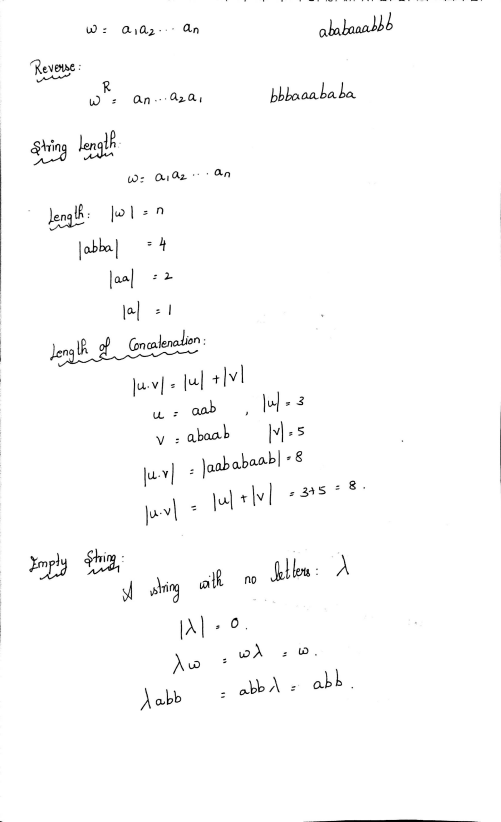 w = a₁a₂ ... aₙ   ababaaabbb
Reverse:
wᴿ = aₙ...a₂a₁   bbbaaababa
String Length:
w = a₁a₂ ... aₙ
Length: |w| = n
|abba| = 4
|aa| = 2
|a| = 1
Length of Concatenation:
|u.v| = |u| + |v|
u = aab , |u| = 3
v = abaab |v| = 5
|u.v| = |aababaab| = 8
|u.v| = |u| + |v| = 3+5 = 8.
Empty String:
A string with no letters: λ
|λ| = 0.
λw = wλ = w.
λabb = abbλ = abb.